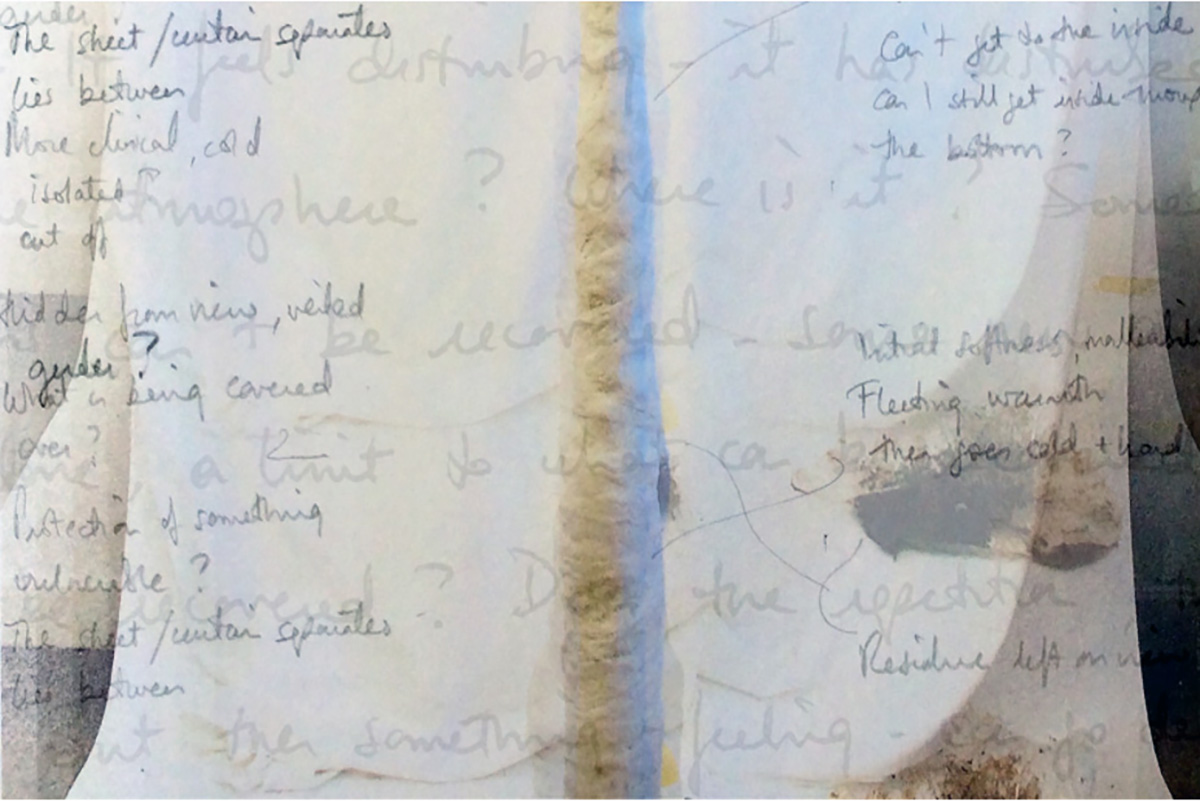 gender?
The sheet/curtain separates
lies between
More clinical, cold
isolated
cut off
Hidden from view, veiled
gender?
What is being covered
over?
Protection of something
vulnerable?
The sheet/curtain separates
lies between
Can't get to the inside
can I still get inside
the bottom?
Initial softness,
Fleeting warmth
then goes cold + hard
Residue left on
It feels disturbing - it has
atmosphere? Where is it? Some
can't be recorded - some
a limit to what can be
Does the repetition
the something + feeling - can